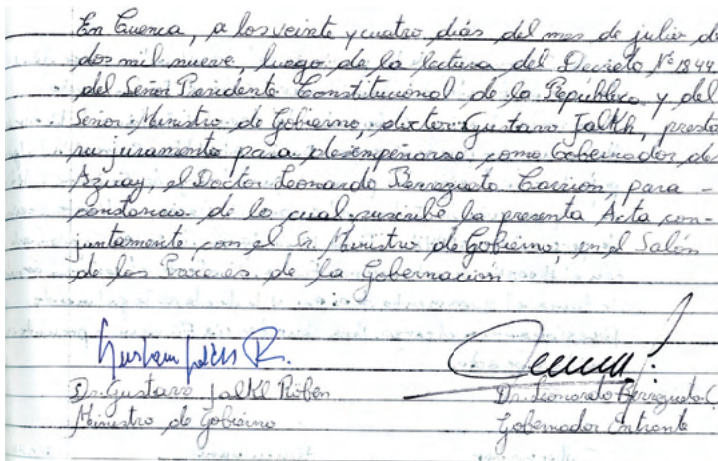 En Cuenca, a los veinte y cuatro días del mes de julio de
dos mil nueve, luego de la lectura del Decreto Nº 1844
del Señor Presidente Constitucional de la República y del
Señor Ministro de Gobierno, doctor Gustavo Jalkh, presta
su juramento para desempeñarse como Gobernador del
Azuay, el Doctor Leonardo Berrezueta Carrión, para -
constancia de lo cual suscribe la presente Acta con-
juntamente con el Sr. Ministro de Gobierno, en el Salón
de los Próceres de la Gobernación
Gustavo Jalkh R.
Dr. Gustavo Jalkh Röben
Ministro de Gobierno
Dr. Leonardo Berrezueta C.
Gobernador Entrante